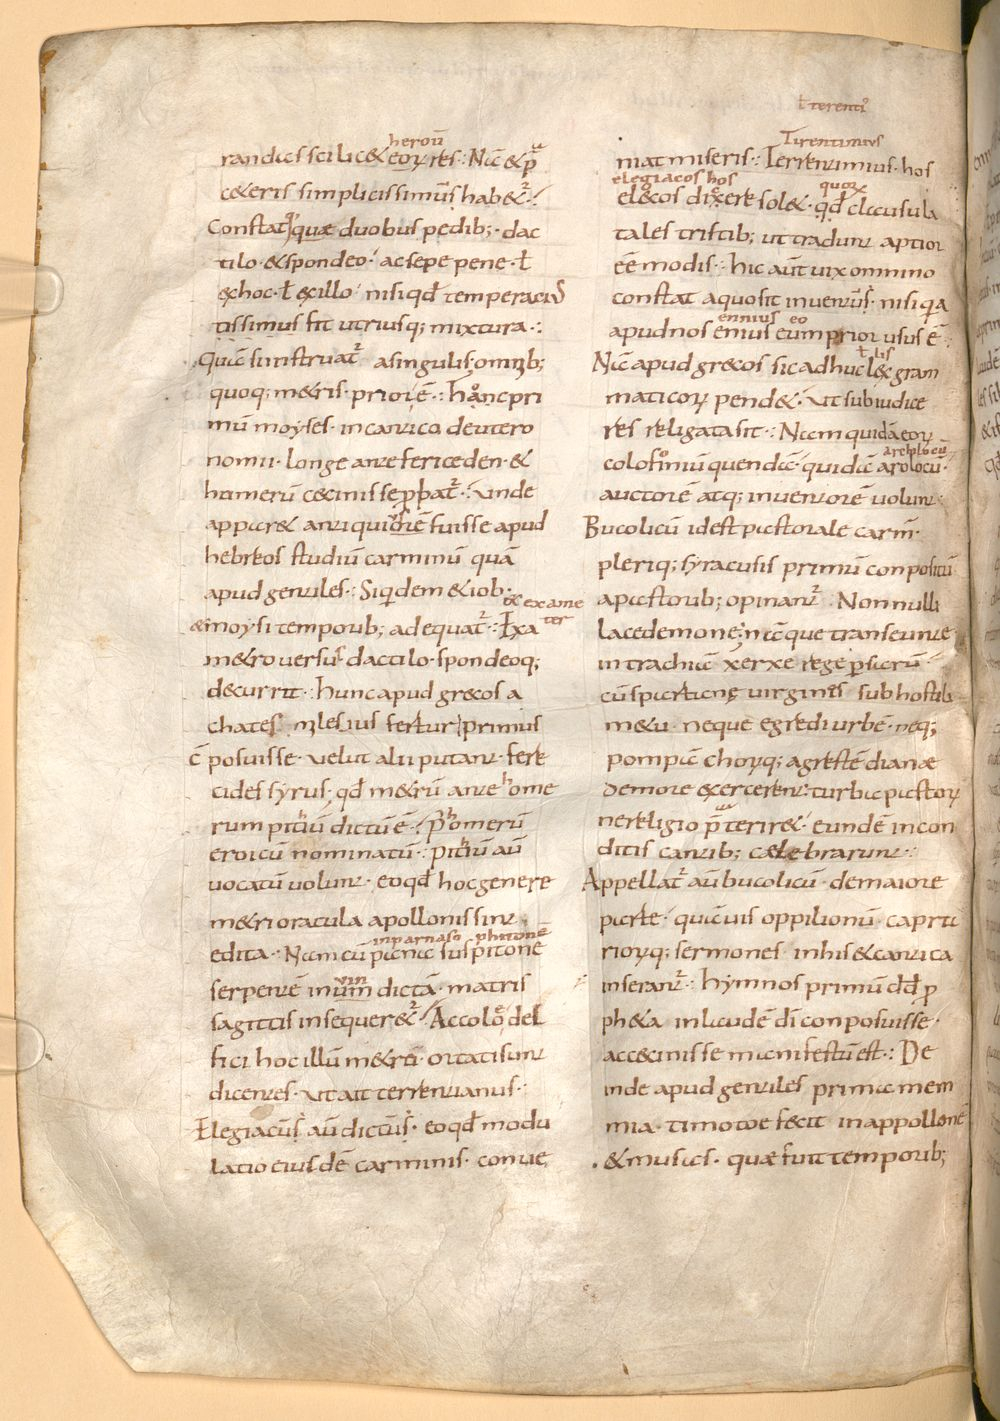 heroū
randas scilic& eoꝝ res :· Nā & p̄
c&eris simplicissimus hab&r̄ :·
Constat q̄ quæ duobus pedib; · dac
tilo · & spondeo · ac sepe pene · ł
ex hoc · ł ex illo · nisi qđ temperatis
tissimus fit utriusq; mixtura :·
Quā si instruat̄ a singulis · omīb;
quoq; m&ris · prior ē :· hanc pri
mū moyses · in cantico deutero
nomii · longe ante fericeden · &
humerū cecinisse ꝓbat̄ :· Unde
appar& antiquiorē fuisse apud
hebreos studiū carminū quā
apud gentiles :· Siqdem & iob ·
ł exame
ter
& moysi temporib; adequat̄ :· Exa
m&ro versus dactilo · spondeoq;
decurrit :· hunc apud grecos a
chates mlesius fertur primus
cōposuisse · velut alii putant · fere
cides syrus · qđ m&rū ante home
rum pithiū dictū ē :· p̄ homerū
eroicū nominatū :· pithiū aū
vocatū volunt · eo qđ hoc genere
m&ri oracula apollonis sint
edita · Nam cū in parnaso phitonē
picnāc sus pitonē
serpentē in uim dictā · matris
vin
sagittis insequer&r̄ · Accolę del
fici hoc illū m&ro ortati sunt
dicentes · ut ait terrentianus :
Elegiacus aū dictus · eo qđ modu
latio eiusdē carminis · conve
ł terenti᷒
Tirentinius
niat miseris :· Terrentinius · hos
elegiacos hos
elecos dixere sol& · qđ clausula
quox
tales tristib; ut tradunt aptior
eē modis :· hic aūt vix omnino
constat a quo sit inventus · nisi qa
ennius eo
apud nos enius eum prior usus ē :·
Nā apud grecos sic adhuc lis & gram
maticoꝝ pend& · ut sub iudice
res religata sit :· Nam quidā eoꝝ
colofoniū quendā · quidā arolocū ·
arcilocū
auctorē atq; inventorē volunt :·
Bucolicū id est pastorale carm̄ ·
pleriq; syracusis primū conpositū
a pastorib; opinant̄ · Nonnulli
lacedemone; nāque transeunte
in trachia xerxe rege persarū ·
cū spartanę virgines sub hostili
m&u · neque egredi urbē · neq;
pompā choꝝq; agrestē dianæ
de more exercerent · turba pastoꝝ
ne religio p̄terir& · eundē incon
ditis cantib; cælebrarunt :·
Appellat̄ aū bucolicū · de maiore
parte · quāvis oppilionū · capra
rioꝝq; sermones in his & cantica
inserant̄ :· hymnos primū dđ p
ph&a in laudē di conposuisse ·
ac cecinisse manifestū est :· De
inde apud gentiles prima mem
mia · timotoe fecit in appollonē
& musas · quæ fuit temporib;